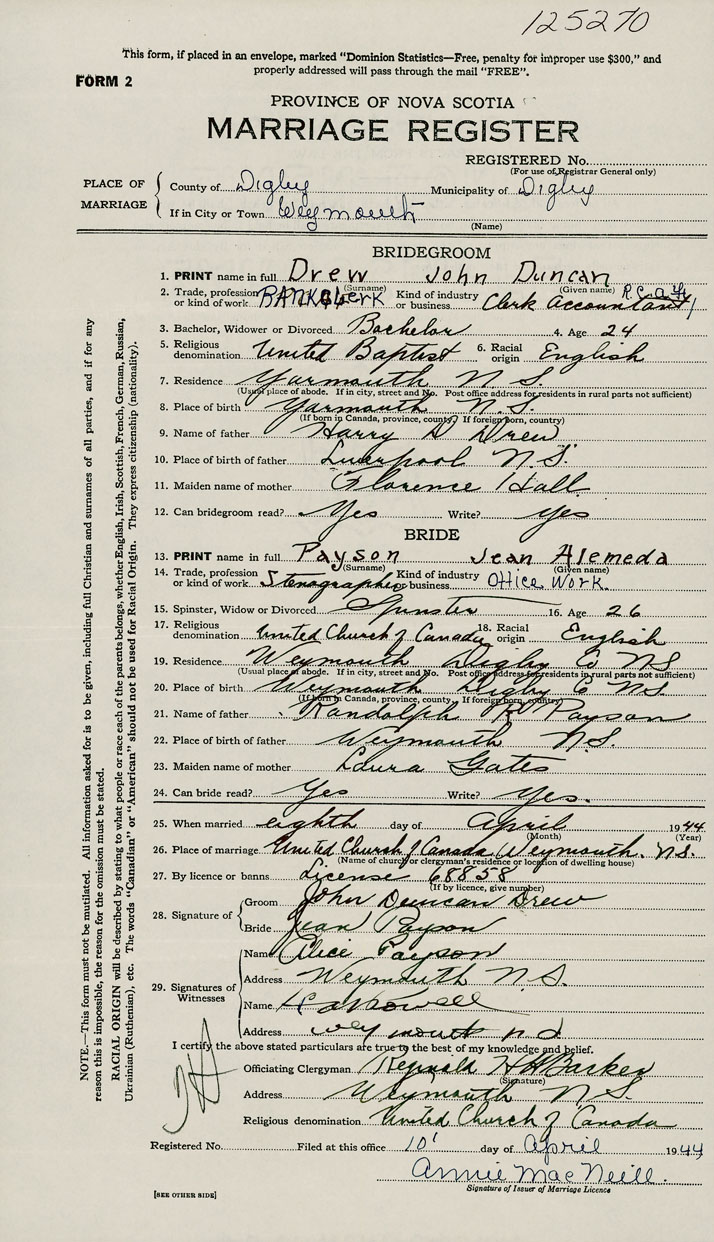 125270
This form, if placed in an envelope, marked "Dominion Statistics—Free, penalty for improper use $300," and
properly addressed will pass through the mail "FREE".
FORM 2
PROVINCE OF NOVA SCOTIA
MARRIAGE REGISTER
REGISTERED No.
(For use of Registrar General only)
PLACE OF MARRIAGE
County of Digby Municipality of Digby
If in City or Town Weymouth
(Name)
BRIDEGROOM
1. PRINT name in full Drew John Duncan
(Surname) (Given name)
2. Trade, profession or kind of work BANK Clerk Kind of industry or business Clerk Accountant R.C.A.F.
3. Bachelor, Widower or Divorced Bachelor 4. Age 24
5. Religious denomination United Baptist 6. Racial origin English
7. Residence Yarmouth N.S.
(Usual place of abode. If in city, street and No. Post office address for residents in rural parts not sufficient)
8. Place of birth Yarmouth N.S.
(If born in Canada, province, county. If foreign born, country)
9. Name of father Harry Drew
10. Place of birth of father Liverpool N.S.
11. Maiden name of mother Florence Hall
12. Can bridegroom read? Yes Write? Yes
BRIDE
13. PRINT name in full Payson Jean Alemeda
(Surname) (Given name)
14. Trade, profession or kind of work Stenographer Kind of industry or business Office Work.
15. Spinster, Widow or Divorced Spinster 16. Age 26
17. Religious denomination United Church of Canada 18. Racial origin English
19. Residence Weymouth Digby Co NS
(Usual place of abode. If in city, street and No. Post office address for residents in rural parts not sufficient)
20. Place of birth Weymouth Digby Co NS.
(If born in Canada, province, county. If foreign born, country)
21. Name of father Randolph Payson
22. Place of birth of father Weymouth N.S.
23. Maiden name of mother Laura Gates
24. Can bride read? Yes Write? Yes.
25. When married eighth day of April 1944
(Month) (Year)
26. Place of marriage United Church of Canada Weymouth. N.S.
(Name of church or clergyman's residence or location of dwelling house)
27. By licence or banns License 68858
(If by licence, give number)
28. Signature of
Groom John Duncan Drew
Bride Jean Payson
29. Signatures of Witnesses
Name Alice Payson
Address Weymouth N.S.
Name
Address Weymouth n.s
I certify the above stated particulars are true to the best of my knowledge and belief.
Officiating Clergyman Reginald Barker
(Signature)
Address Weymouth N.S.
Religious denomination United Church of Canada
Registered No. Filed at this office 10' day of April 1944
Annie MacNeill.
Signature of Issuer of Marriage Licence
[SEE OTHER SIDE]
NOTE.—This form must not be mutilated. All information asked for is to be given, including full Christian and surnames of all parties, and if for any
reason this is impossible, the reason for the omission must be stated.
RACIAL ORIGIN will be described by stating to what people or race each of the parents belongs, whether English, Irish, Scottish, French, German, Russian,
Ukrainian (Ruthenian), etc. The words "Canadian" or "American" should not be used for Racial Origin. They express citizenship (nationality).